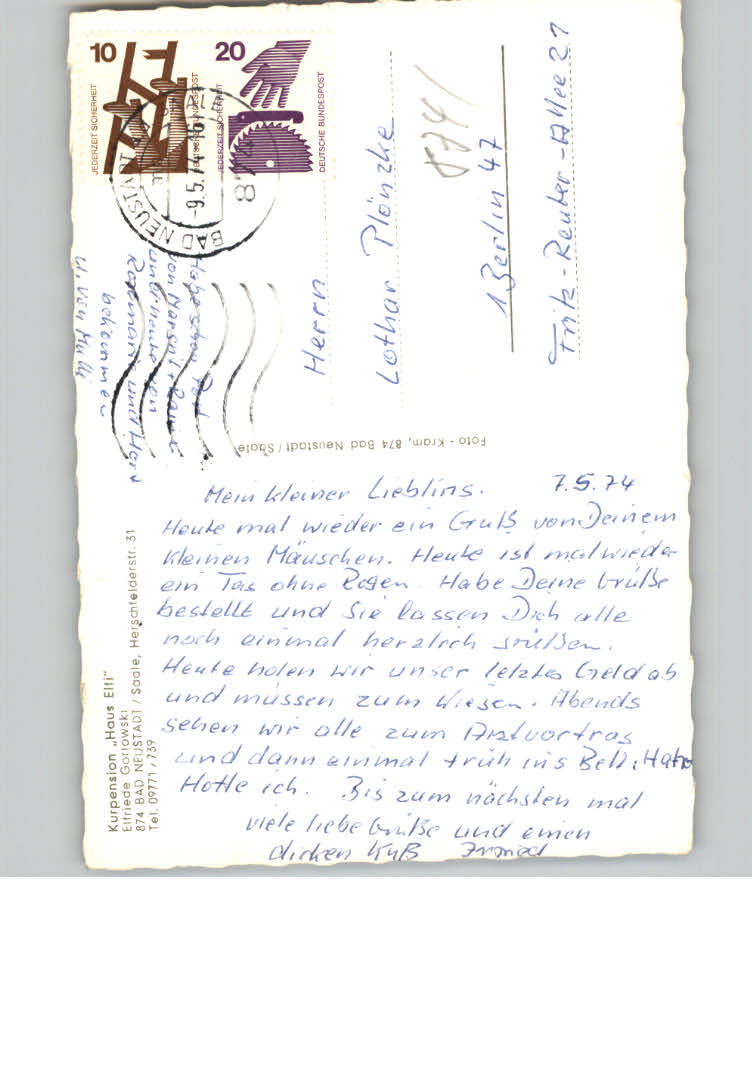 Mein kleiner Liebling. 7.5.74
Heute mal wieder ein Gruß von Deinem
kleinen Mäuschen. Heute ist mal wieder
ein Tag ohne Regen. Habe Deine Grüße
bestellt und Sie lassen Dich alle
noch einmal herzlich grüßen.
Heute holen wir unser letztes Geld ab
und müssen zum Wiegen. Abends
gehen wir alle zum Arztvortrag
und dann einmal früh ins Bett.
Hoffe ich. Bis zum nächsten mal
viele liebe Grüße und einen
dicken Kuß
Habe schon Post
von Margrit + Rainer
und heute von
Rosemarie und
bekommen
u. von Mutti
Herrn
Lothar Plönzke
1 Berlin 47
Fritz-Reuter-Allee 21
874/
10
JEDERZEIT SICHERHEIT
DEUTSCHE BUNDESPOST
20
JEDERZEIT SICHERHEIT
DEUTSCHE BUNDESPOST
BAD NEUSTADT
-9.5.74-16
874
Foto-Kram, 874 Bad Neustadt/Saale
Kurpension „Haus Elfi"
Elfriede Gorlowski
874 BAD NEUSTADT / Saale, Herschfelderstr. 31
Tel. 09771 / 739